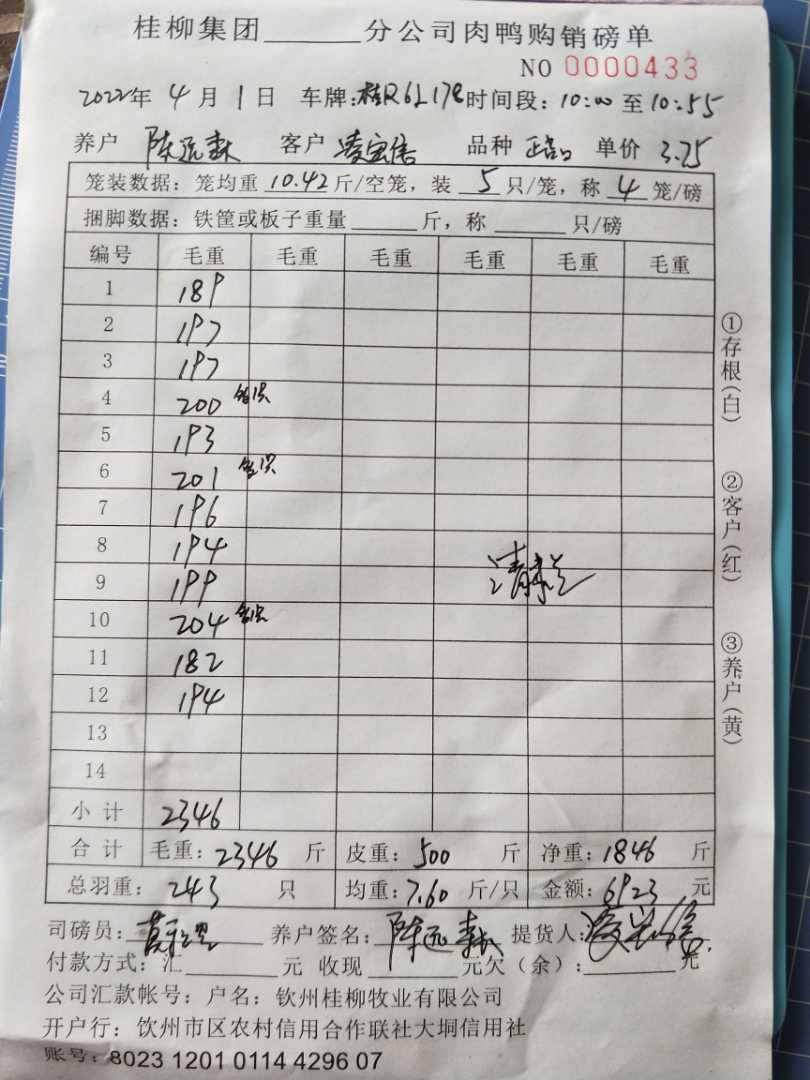 桂柳集团______分公司肉鸭购销磅单
NO 0000433
2022年 4 月 1 日 车牌:桂R6L178 时间段:10:00 至 10:55
养户 陈远森 客户 凌宝信 品种 单价 3.75
笼装数据:笼均重 10.42 斤/空笼,装 5 只/笼,称 4 笼/磅
捆脚数据:铁筐或板子重量______斤,称______只/磅
编号 毛重 毛重 毛重 毛重 毛重 毛重
1 189
2 197
3 197
4 200
5 193
6 201
7 196
8 194
9 199
10 204
11 182
12 194
13
14
小计 2346
合计 毛重:2346 斤 皮重:500 斤 净重:1846 斤
总羽重:243 只 均重:7.60 斤/只 金额:6923 元
司磅员: 养户签名:陈远森 提货人:
付款方式:汇______元 收现______元欠(余):______元
公司汇款帐号:户名:钦州桂柳牧业有限公司
开户行:钦州市区农村信用合作联社大垌信用社
账号:8023 1201 0114 4296 07
①存根(白)
②客户(红)
③养户(黄)